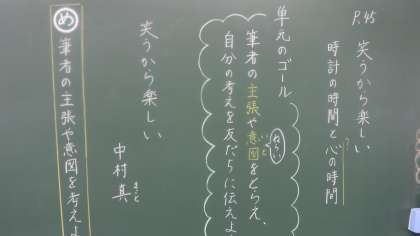 P.45
笑うから楽しい
時計の時間と心の時間
単元のゴール
ねらい
いと
筆者の主張や意図をとらえ、
自分の考えを友だちに伝えよ
笑うから楽しい
中村真
まこと
め 筆者の主張や意図を考えよ